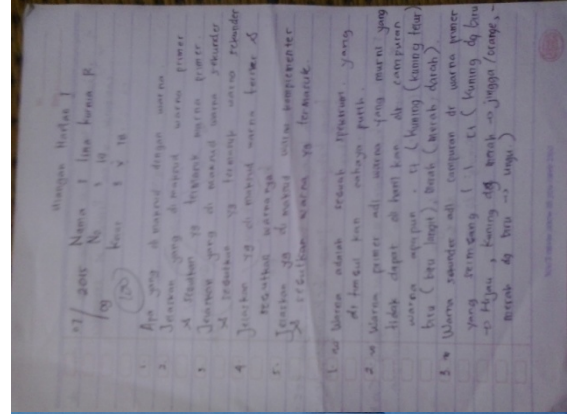 Ulangan Harian I
07/09 2015
Nama : Lina Kurnia R.
No : 18
Kelas : X
100
1. Apa yang di maksud dengan warna
2. Jelaskan yang di maksud warna primer
& sebutkan yg termasuk warna primer
3. Jelaskan yang di maksud warna sekunder
& sebutkan yg termasuk warna sekunder
4. Jelaskan yg di maksud warna tersier &
sebutkan warnanya
5. Jelaskan yg di maksud warna komplementer
& sebutkan warna yg termasuk.
1. Warna adalah sebuah spektrum yang
di timbulkan cahaya putih.
2. Warna primer adl warna yang murni yang
tidak dapat di hasilkan dr campuran
warna apapun. (kuning (kuning telur)
biru (biru langit), merah (merah darah).
3. Warna sekunder adl campuran dr warna primer
yang seimbang. (kuning dg biru
→ Hijau, kuning dg merah → jingga/orange,
merah dg biru → ungu)